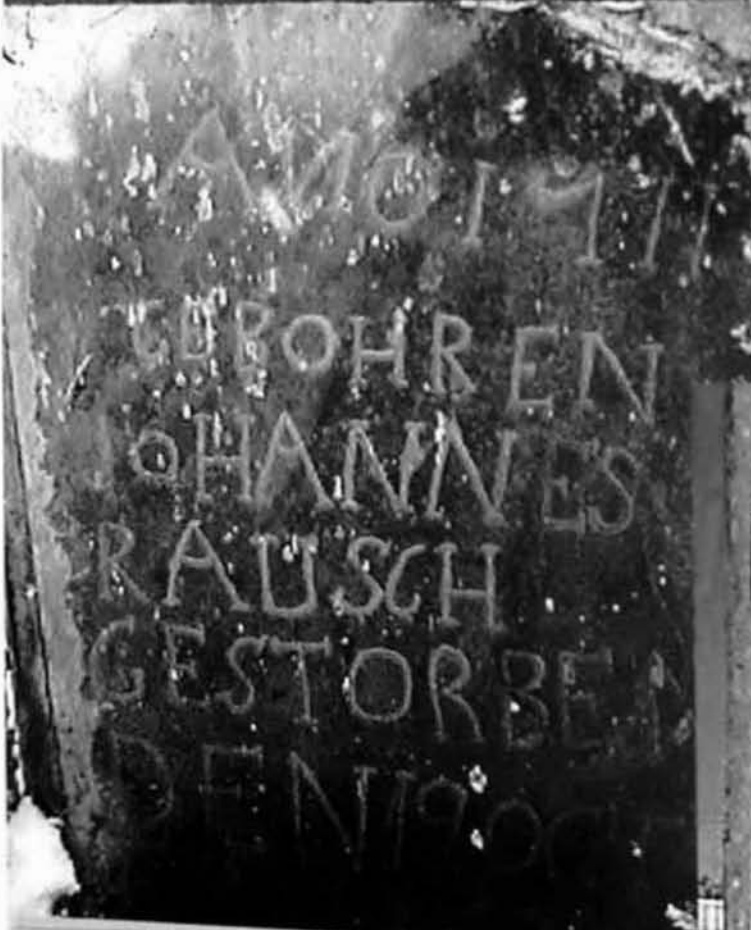 ANO 1711
GEBOHREN
IOHANNES
RAUSCH
GESTORBEN
DEN 19 OCT